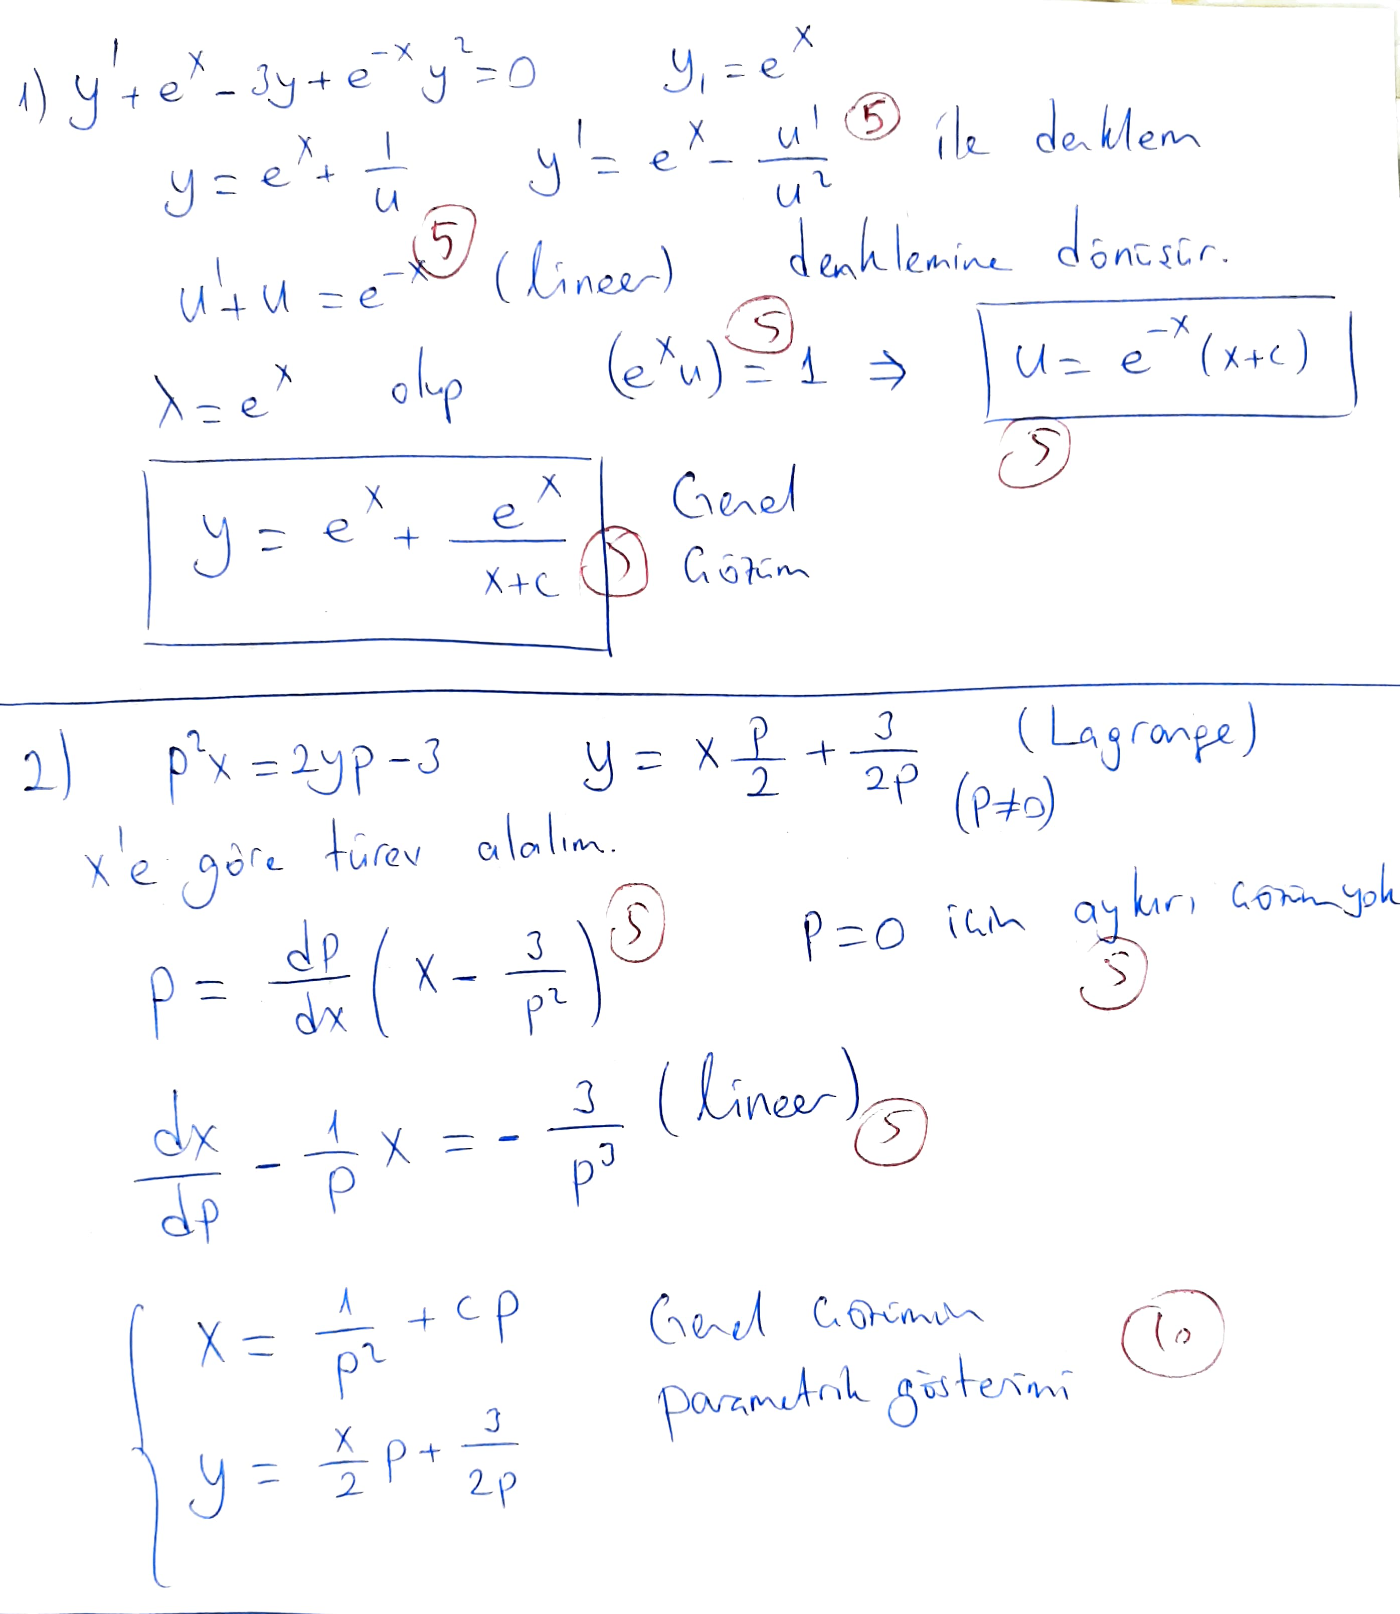 1) y' + e^x - 3y + e^-x y^2 = 0 y₁ = e^x
y = e^x + 1/u y' = e^x - u'/u^2 (5) ile denklem
u' + u = e^-x (5) (lineer) denklemine dönüşür.
λ = e^x olup (e^x u)' = 1 (5) ⇒ u = e^-x (x+c) (5)
y = e^x + e^x/(x+c) (5) Genel
Çözüm
2) p^2x = 2yp - 3 y = x p/2 + 3/2p (Lagrange)
(p≠0)
x'e göre türev alalım.
p = dp/dx (x - 3/p^2) (5) p=0 için aykırı çözüm yok (5)
dx/dp - 1/p x = - 3/p^3 (lineer) (5)
x = 1/p^2 + cp Genel çözümün (10)
y = x/2 p + 3/2p parametrik gösterimi